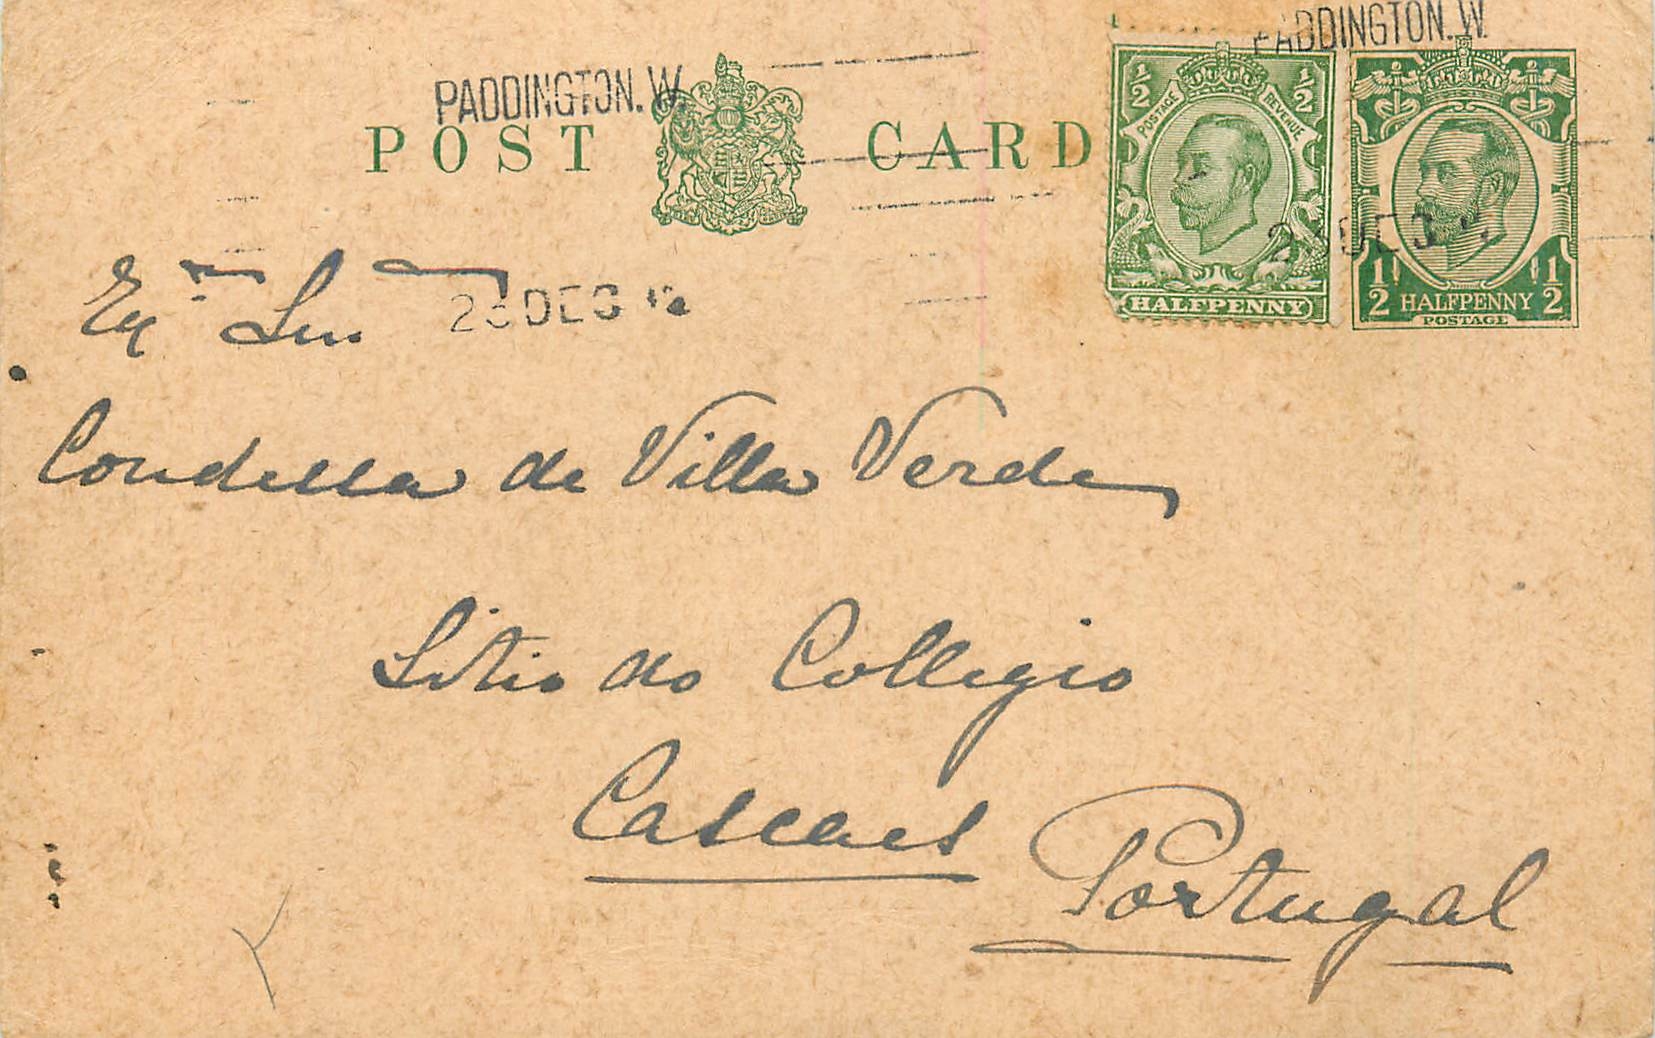 PADDINGTON.W. PADDINGTON.W.
POST CARD
½ ½
POSTAGE REVENUE
HALFPENNY
½ HALFPENNY ½
POSTAGE
DEC
Exma Snra
Condessa de Villa Verde
Sitio do Collegio
Cascaes
Portugal